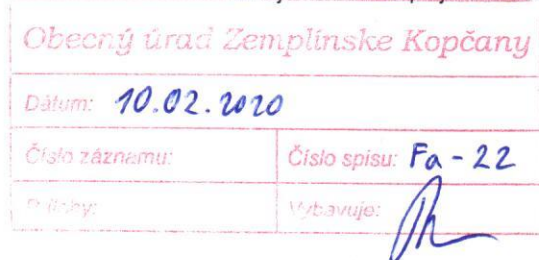 Obecný úrad Zemplínske Kopčany
Dátum: 10.02.2020
Číslo záznamu:
Číslo spisu: Fa - 22
Prílohy:
Vybavuje: